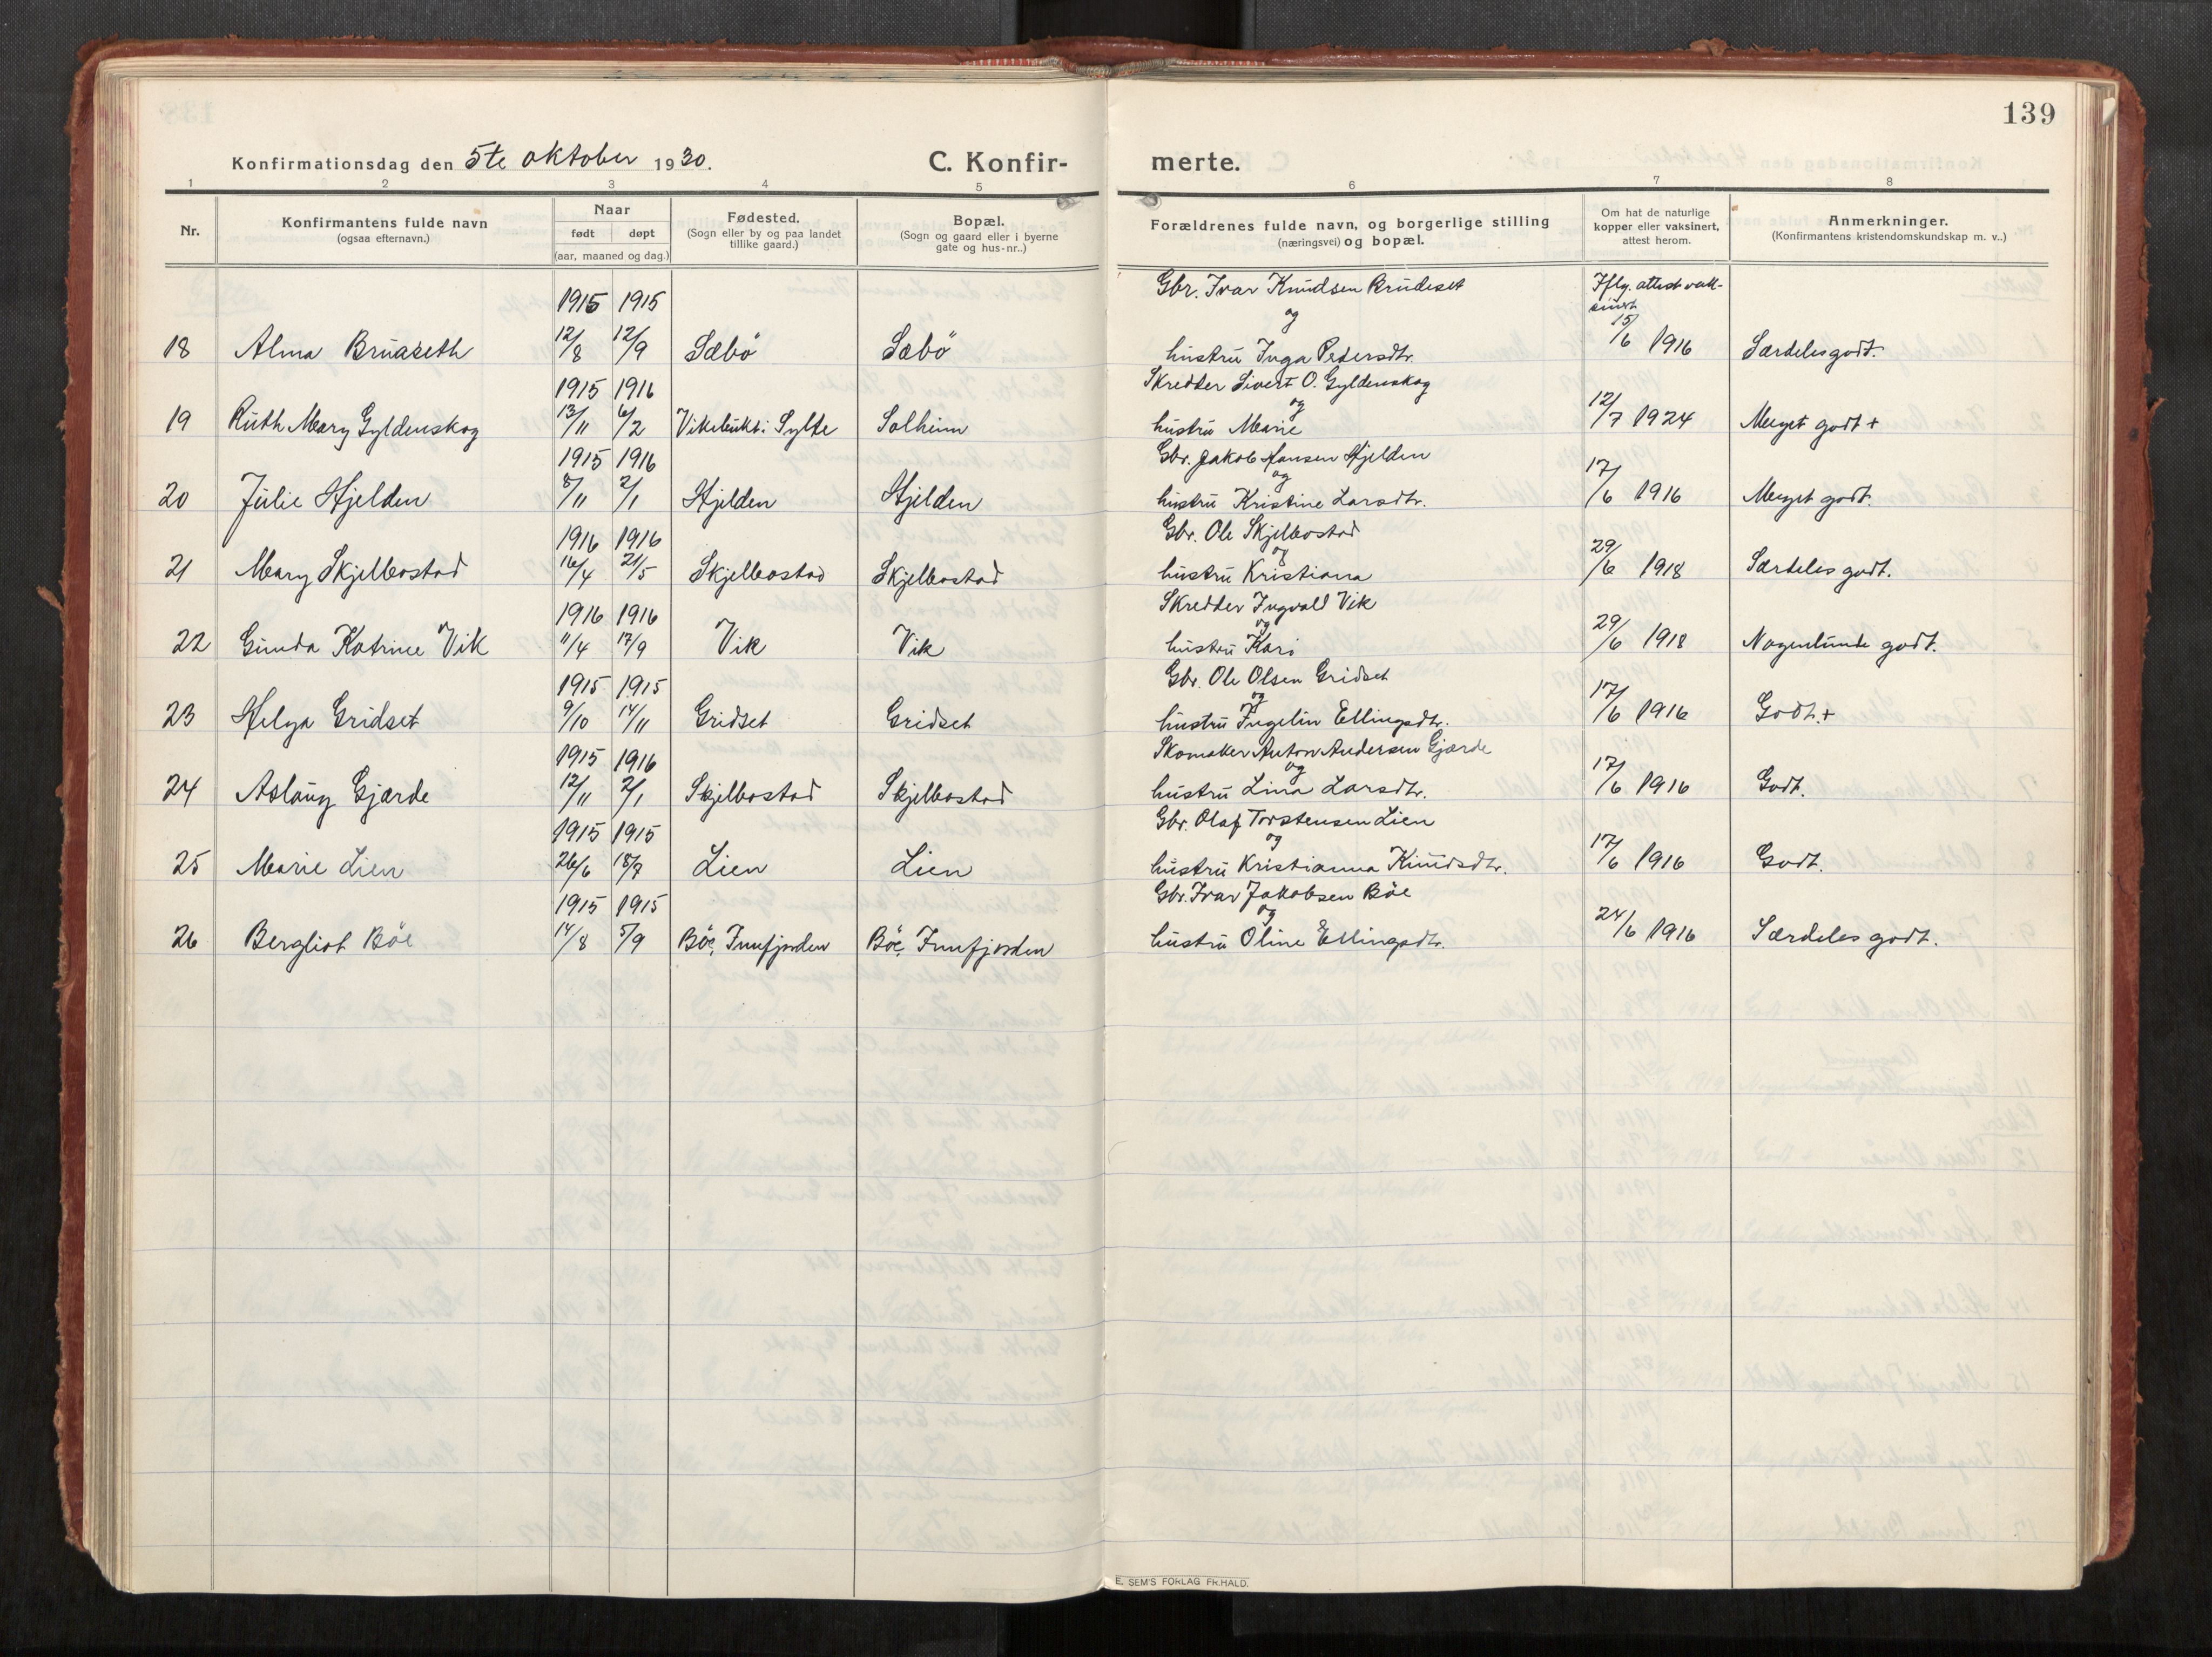 139
Konfirmationsdag den 5te oktober 1930.
C. Konfir-
merte.
1 2 3 4 5 6 7 8
Nr.
Konfirmantens fulde navn
(ogsaa efternavn.)
Naar
født døpt
(aar, maaned og dag.)
Fødested.
(Sogn eller by og paa landet
tillike gaard.)
Bopæl.
(Sogn og gaard eller i byerne
gate og hus-nr..)
Forældrenes fulde navn, og borgerlige stilling
(næringsvei) og bopæl.
Om hat de naturlige
kopper eller vaksinert,
attest herom.
Anmerkninger.
(Konfirmantens kristendomskundskap m. v..)
1915 1915 Gbr. Ivar Knudsen Brudeset Iflg. attest vak-
og sinert
18 Alma Bruaseth 12/8 12/9 Sæbö Sæbö hustru Inga Petersdtr. 15/6 1916 Særdeles godt.
1915 1916 Skredder Sivert O. Gyldenskog
og
19 Ruth Mary Gyldenskog 13/11 6/2 Vikebukt i Sylte Solheim hustru Marie 12/7 1924 Meget godt +
1915 1916 Gbr. Jakob Hansen Hjelden
og
20 Julie Hjelden 8/11 2/1 Hjelden Hjelden hustru Kristine Larsdtr. 17/6 1916 Meget godt.
1916 1916 Gbr. Ole Skjelbostad
og
21 Mary Skjelbostad 16/4 21/5 Skjelbostad Skjelbostad hustru Kristiana 29/6 1918 Særdeles godt.
1916 1916 Skredder Ingvald Vik
og
22 Gunda Katrine Vik 11/4 17/9 Vik Vik hustru Kari 29/6 1918 Nogenlunde godt.
1915 1915 Gbr. Ole Olsen Gridset
og
23 Helga Gridset 9/10 14/11 Gridset Gridset hustru Ingelin Ellingsdtr. 17/6 1916 Godt.+
1915 1916 Skomaker Anton Andersen Gjærde
og
24 Aslaug Gjærde 12/11 2/1 Skjelbostad Skjelbostad hustru Lina Larsdtr. 17/6 1916 Godt.
1915 1915 Gbr. Olaf Torstensen Lien
og
25 Marie Lien 26/6 18/7 Lien Lien hustru Kristianna Knudsdtr. 17/6 1916 Godt.
1915 1915 Gbr. Ivar Jakobsen Böe
og
26 Bergliot Böe 14/8 5/9 Böe, Innfjorden Böe, Innfjorden hustru Oline Ellingsdtr. 24/6 1916 Særdeles godt.
E. SEM'S FORLAG FR.HALD.